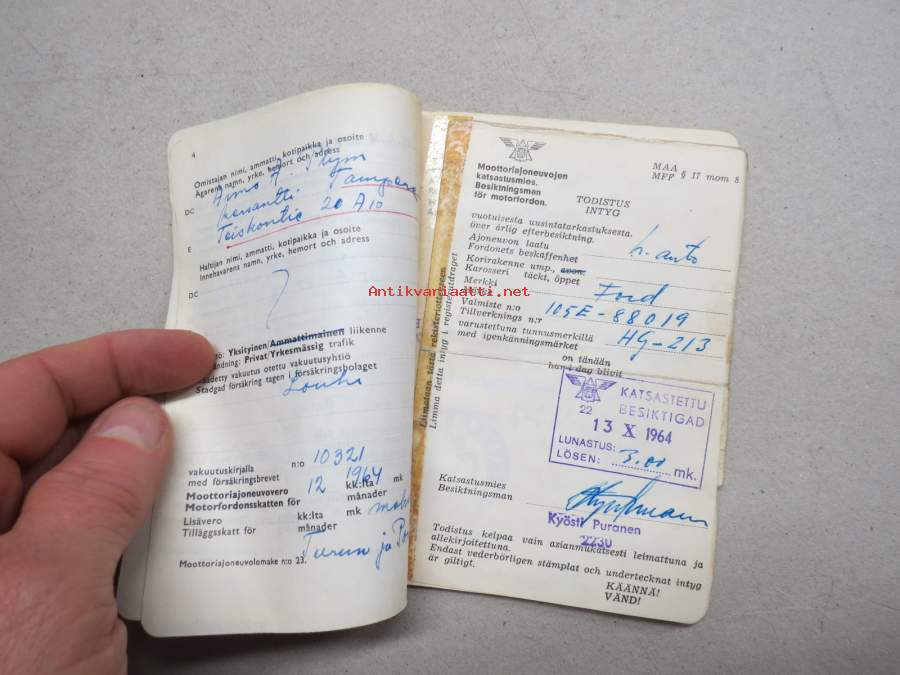 4
Omistajan nimi, ammatti, kotipaikka ja osoite
Ägarens namn, yrke, hemort och adress
DC
Tampere
Teiskontie 20 A 10
E
Haltijan nimi, ammatti, kotipaikka ja osoite
Innehavarens namn, yrke, hemort och adress
DC
Yksityinen Ammattimainen liikenne
Privat Yrkesmässig trafik
vakuutus otettu vakuutusyhtiö
Stadgad försäkring tagen i försäkringsbolaget
vakuutuskirjalla n:o 10321
med försäkringsbrevet
Moottoriajoneuvovero 12 kk:lta 1964 mk
Motorfordonsskatten för månader
Lisävero kk:lta mk
Tilläggsskatt för månader
Turun ja
Moottoriajoneuvolomake n:o 23.
Liimataan tästä rekisteriotteeseen
Limma detta intyg i registerutdraget
Moottoriajoneuvojen
katsastusmies.
Besiktningsman
för motorfordon.
MAA
MFP § 17 mom 8
TODISTUS
INTYG
vuotuisesta uusintatarkastuksesta.
över årlig efterbesiktning.
Ajoneuvon laatu
Fordonets beskaffenhet h. auto
Korirakenne ump., avon.
Karosseri täckt, öppet
Merkki
Märke Ford
Valmiste n:o
Tillverknings n:r 105E-88019
varustettuna tunnusmerkillä
med igenkänningsmärket HG-213
on tänään
har i dag blivit
KATSASTETTU
BESIKTIGAD
22
13 X 1964
LUNASTUS:
LÖSEN: 3.00 mk.
Katsastusmies
Besiktningsman
Kyösti Puranen
2230
Todistus kelpaa vain asianmukaisesti leimattuna ja
allekirjoitettuna.
Endast vederbörligen stämplat och undertecknat intyg
är giltigt.
KÄÄNNÄ!
VÄND!
Antikvariaatti.net